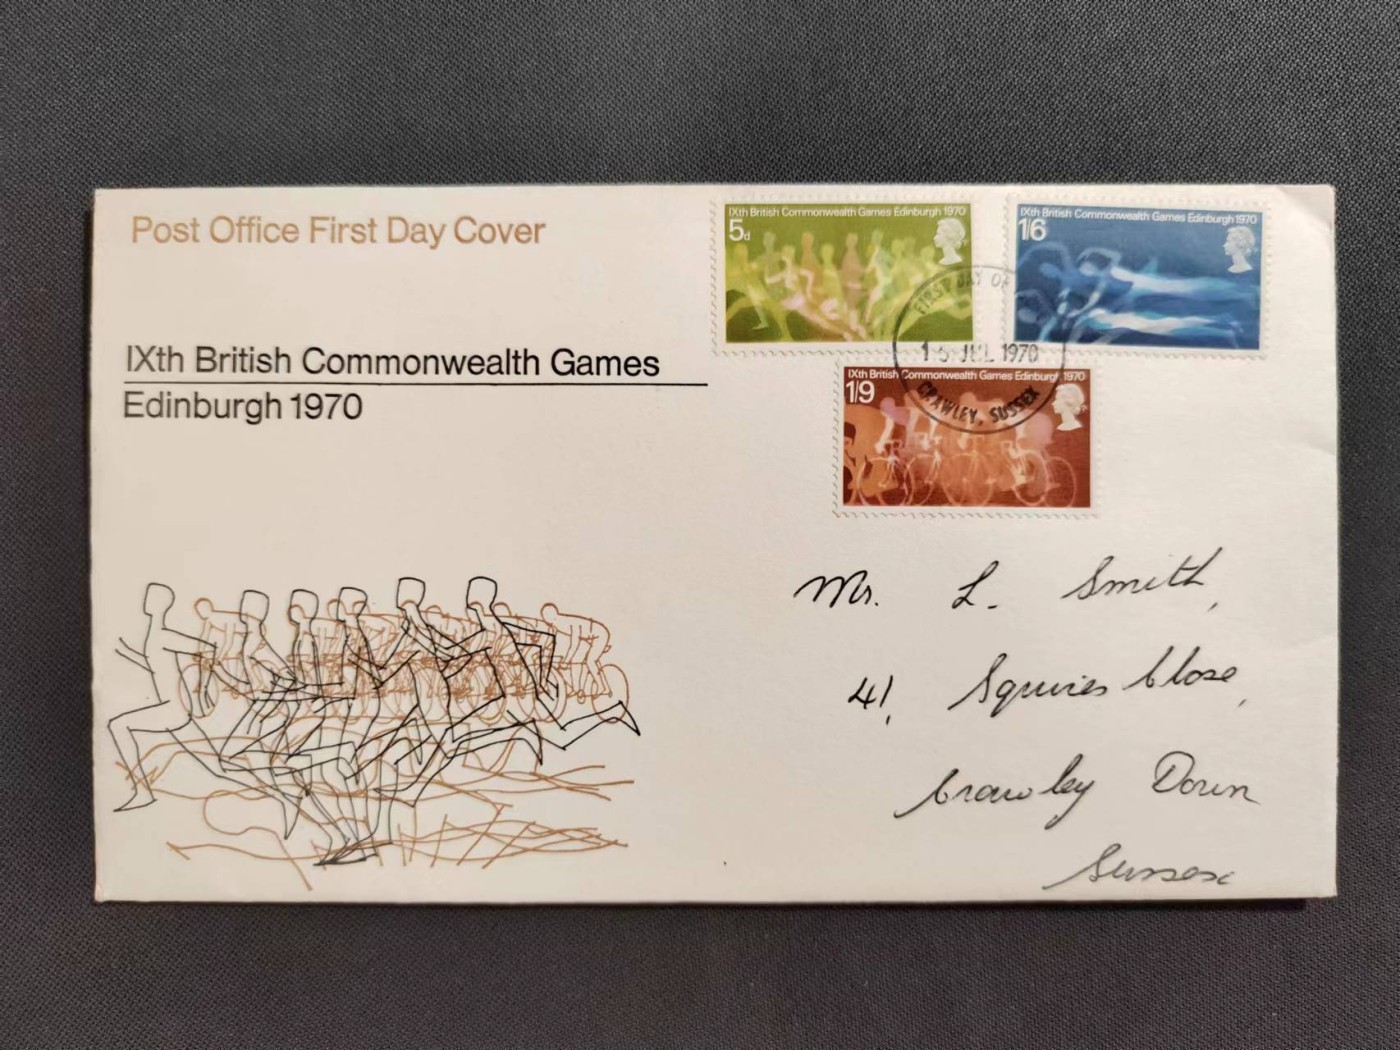 Post Office First Day Cover
IXth British Commonwealth Games
Edinburgh 1970
IXth British Commonwealth Games Edinburgh 1970
5d
IXth British Commonwealth Games Edinburgh 1970
1/6
FIRST DAY OF
JUL 1970
CRAWLEY, SUSSEX
IXth British Commonwealth Games Edinburgh 1970
1/9
Mr. L. Smith,
41, Squires Close,
Crawley Down
Sussex